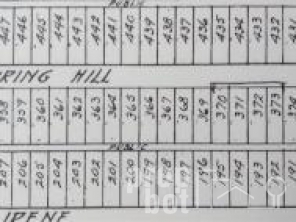 PUBLIC
447 446 445 444 443 442 441 440 439 438 437 436 435 434 433 432 431
RING HILL
358 359 360 361 362 363 364 365 366 367 368 369 370 371 372 373 374
PUBLIC
207 206 205 204 203 202 201 200 199 198 197 196 195 194 193 192 191
IDENE